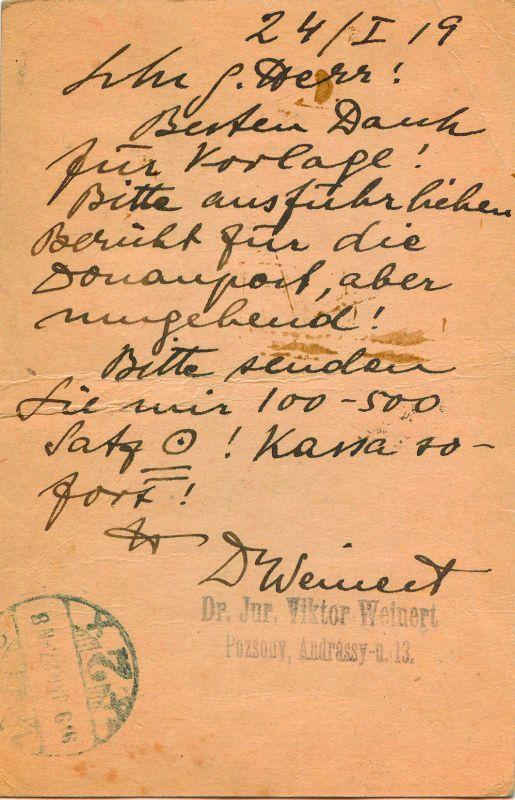 24/I 19
Sehr g. Herr!
Besten Dank
für Vorlage!
Bitte ausführlichen
Bericht für die
Donaupost, aber
umgehend!
Bitte senden
Sie mir 100-500
Satz ⊙! Kassa so-
fort!
Dr Weinert
Dr. Jur. Viktor Weinert
Pozsony, Andrássy-u. 13.